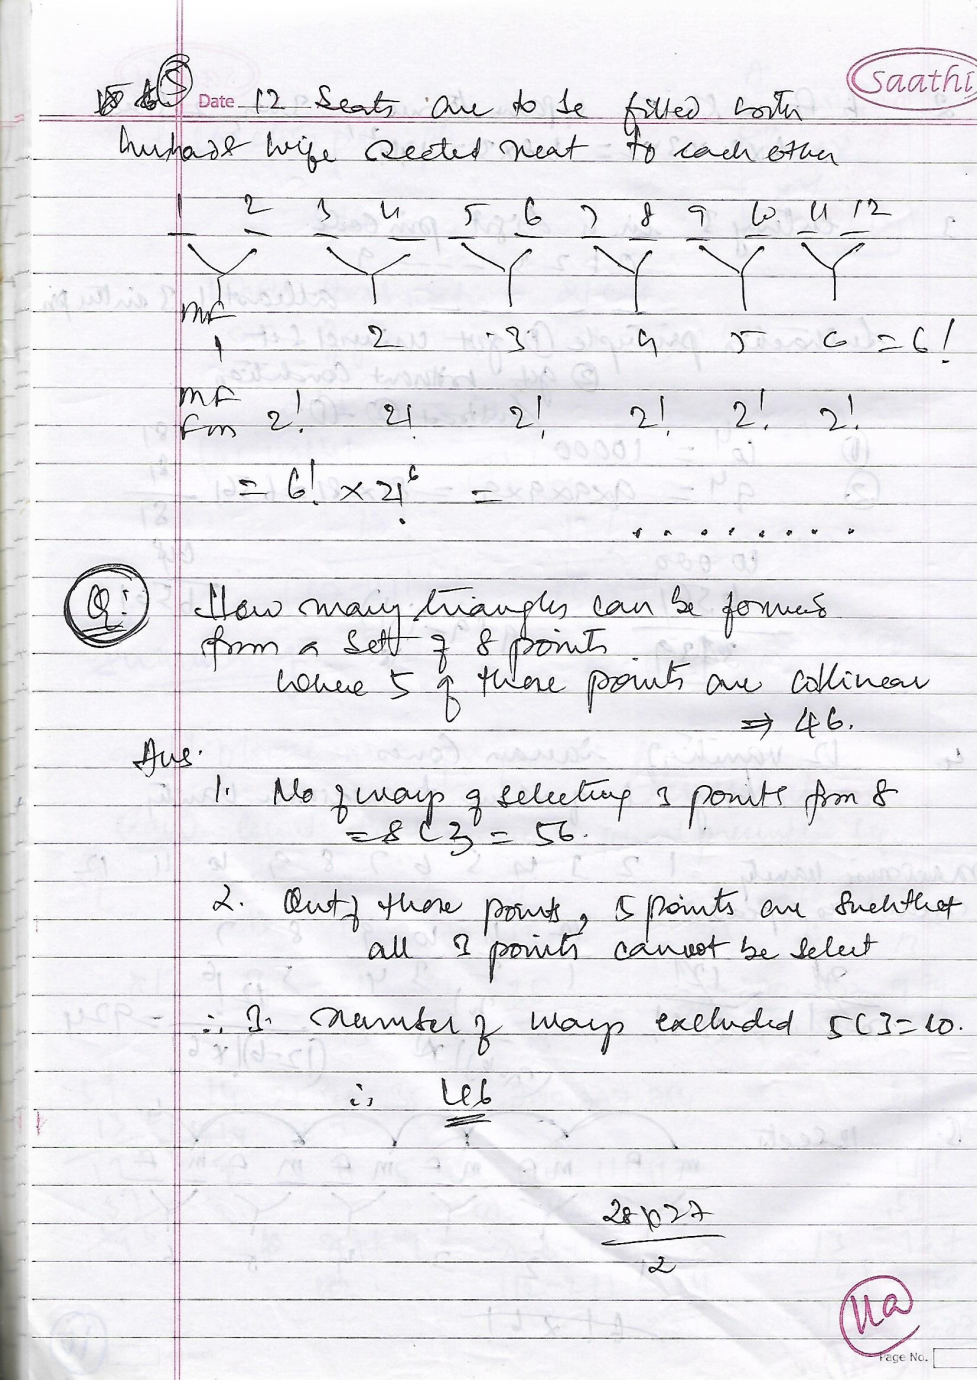 5
Saathi
Date 12 Seats are to be filled with
husband & wife seated next to each other
1 2 3 4 5 6 7 8 9 10 11 12
MF
1 2 3 4 5 6 = 6!
MF
Fm 2! 2! 2! 2! 2! 2!
= 6! × 2!⁶ =
. . . . . . . .
Q: How many triangles can be formed
from a set of 8 points
where 5 of these points are collinear
⇒ 46.
Ans.
1. No of ways of selecting 3 points from 8
= 8C3 = 56.
2. Out of these points, 5 points are such that
all 3 points cannot be select
∴ 3. number of ways excluded 5C3 = 10.
∴ 46
28 × 27
2
11a
Page No.